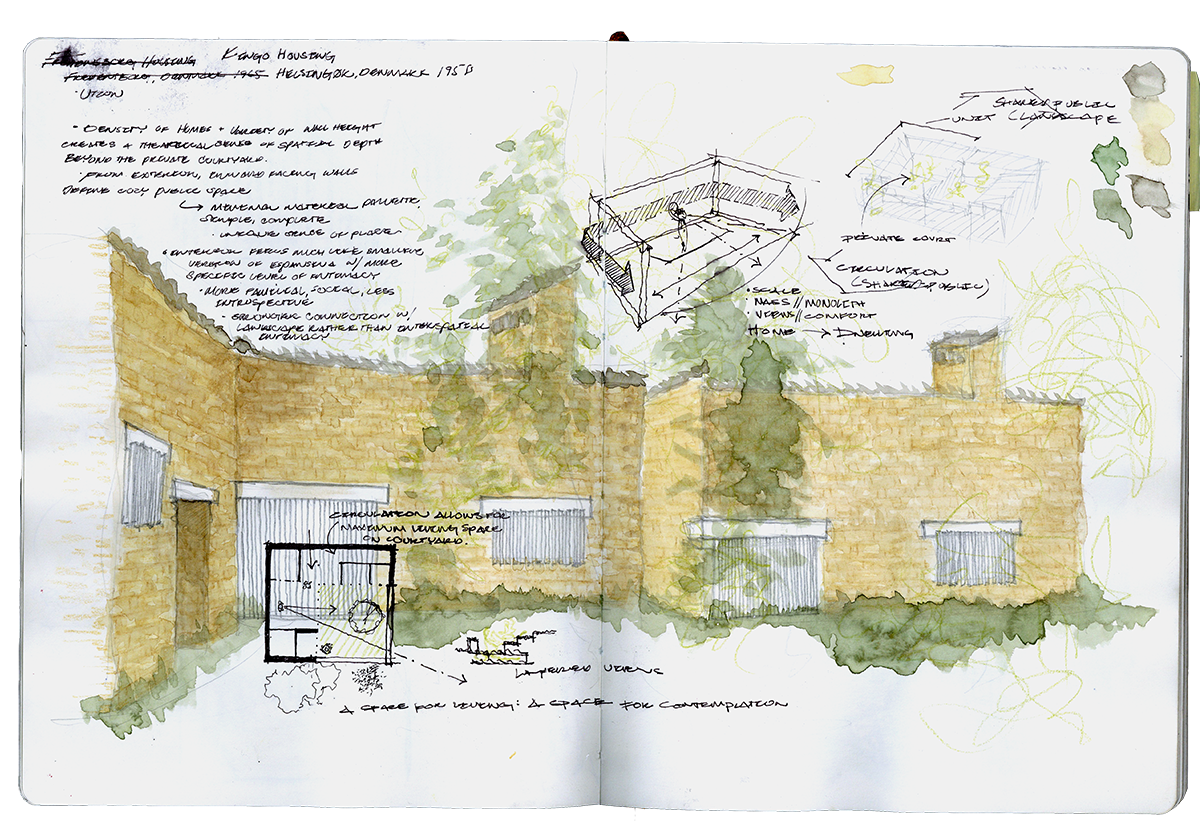 FREDENSBORG HOUSING KINGO HOUSING
FREDENSBORG, DENMARK 1965 HELSINGØR, DENMARK 1958
· UTZON
· DENSITY OF HOMES + VARIETY OF WALL HEIGHT
CREATES A THEATRICAL SENSE OF SPATIAL DEPTH
BEYOND THE PRIVATE COURTYARD.
· FROM EXTERIOR, INWARD FACING WALLS
DEFINE COZY PUBLIC SPACE
↳ MINIMAL MATERIAL PALETTE,
SIMPLE, COMPLETE
· UNIQUE SENSE OF PLACE
· INTERIOR FEELS MUCH LIKE SMALLER
VERSION OF EXPANSIVE W/ MORE
SPECIFIC LEVEL OF INTIMACY
· MORE FAMILIAL, SOCIAL, LESS
INTROSPECTIVE
· STRONGER CONNECTION W/
LANDSCAPE RATHER THAN INTERSPATIAL
INTIMACY
SHARED/PUBLIC
UNIT LANDSCAPE
PRIVATE COURT
CIRCULATION
(SHARED/PUBLIC)
· SCALE
· MASS // MONOLITH
· VIEWS // COMFORT
HOME → DWELLING
CIRCULATION ALLOWS FOR
MAXIMUM LIVING SPACE
ON COURTYARD.
LAYERED VIEWS
A SPACE FOR LIVING: A SPACE FOR CONTEMPLATION